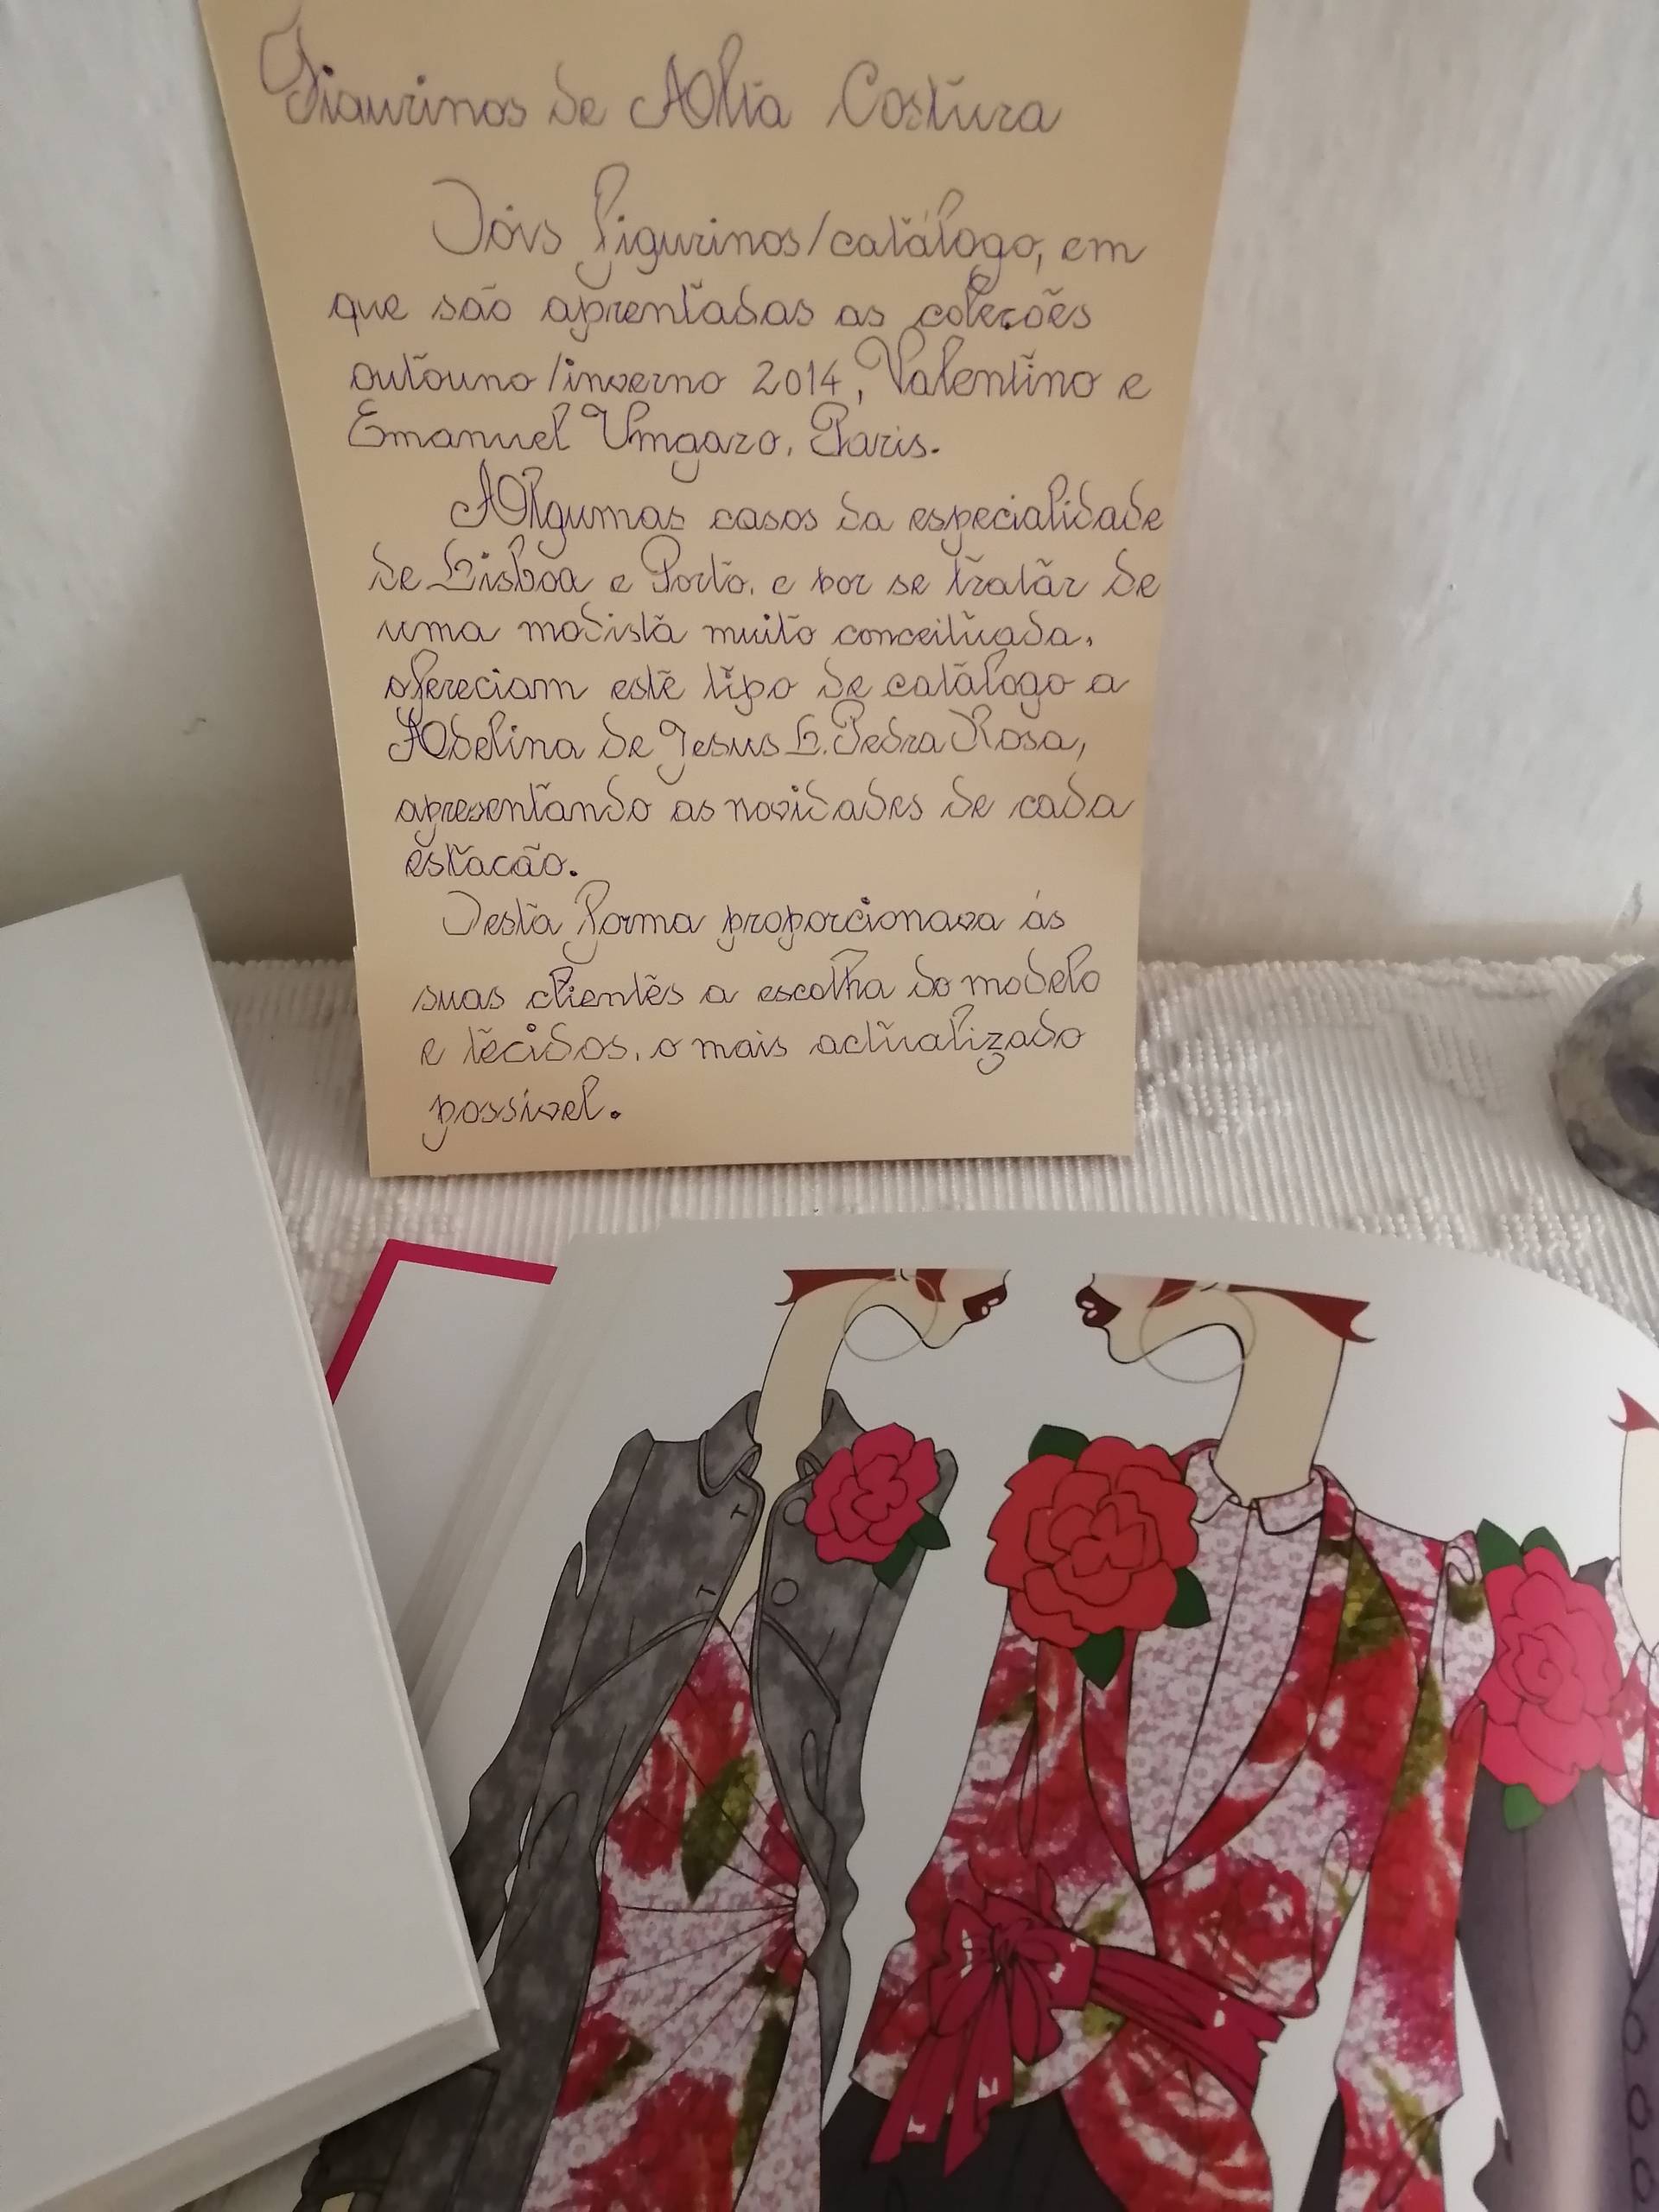 Figurinos de Alta Costura
Dois figurinos/catálogo, em
que são aprentadas as coleções
outouno/inverno 2014, Valentino e
Emanuel Umgaro, Paris.
Algumas casas da especialidade
de Lisboa e Porto, e por se tratar de
uma modista muito conceituada,
ofereciam este tipo de catálogo a
Adelina de Jesus L. Pedra Rosa,
apresentando as novidades de cada
estacão.
Desta forma proporcionava ás
suas clientes a escolha do modelo
e tecidos, o mais actualizado
possível.